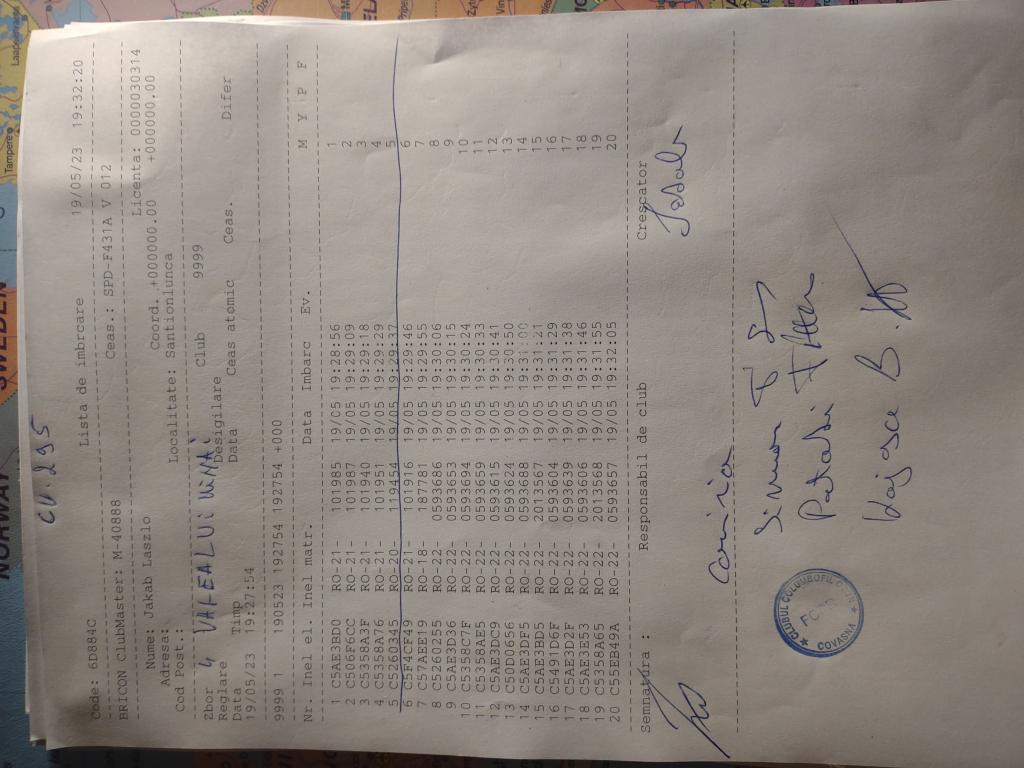 CU.295
Lista de imbrcare 19/05/23 19:32:20
Code: 6D884C
BRICON ClubMaster: M-40888 Ceas.: SPD-F431A V 012
Name: Jakab Laszlo Licenta: 0000030314
Adresa: Coord. +000000.00 +0000000.00
Cod Post.: Localitate: Santionlunca
Zbor 4 VALEALUiWiNAi Club 9999
Reglare Desigilare
Data Timp Data Ceas atomic Ceas. Difer
19/05/23 19:27:54
9999 1 190523 192754 192754 +000
Nr. Inel el. Inel matr. Data Imbarc Ev. M Y P F
1 C5AE3BD0 RO-21- 101985 19/05 19:28:56 1
2 C506FECC RO-21- 101987 19/05 19:29:09 2
3 C5358A3F RO-21- 101940 19/05 19:29:18 3
4 C5358A76 RO-21- 101951 19/05 19:29:29 4
5 C5260345 RO-20- 19454 19/05 19:29:37 5
6 C574CF49 RO-21- 101916 19/05 19:29:46 6
7 C57AEB19 RO-18- 187787 19/05 19:29:55 7
8 C5260255 RO-22- 0593686 19/05 19:30:06 8
9 C5AE3D36 RO-22- 0593653 19/05 19:30:15 9
10 C5358C7F RO-22- 0593694 19/05 19:30:24 10
11 C5358AE5 RO-22- 0593659 19/05 19:30:33 11
12 C5AE3DC9 RO-22- 0593615 19/05 19:30:41 12
13 C50D0656 RO-22- 0593624 19/05 19:30:50 13
14 C5AE3DF5 RO-22- 0593688 19/05 19:31:00 14
15 C5AE3BD5 RO-22- 2013567 19/05 19:31:21 15
16 C5491D6F RO-22- 0593604 19/05 19:31:29 16
17 C5AE3D2F RO-22- 0593639 19/05 19:31:38 17
18 C5AE3E53 RO-22- 0593606 19/05 19:31:46 18
19 C5358A65 RO-22- 2013568 19/05 19:31:55 19
20 C55EB49A RO-22- 0593657 19/05 19:32:05 20
Semnatura : Responsabil de club Crescator
Simon
Pataki
Kajcsa B.
CLUBUL COLUMBOFIL
COVASNA